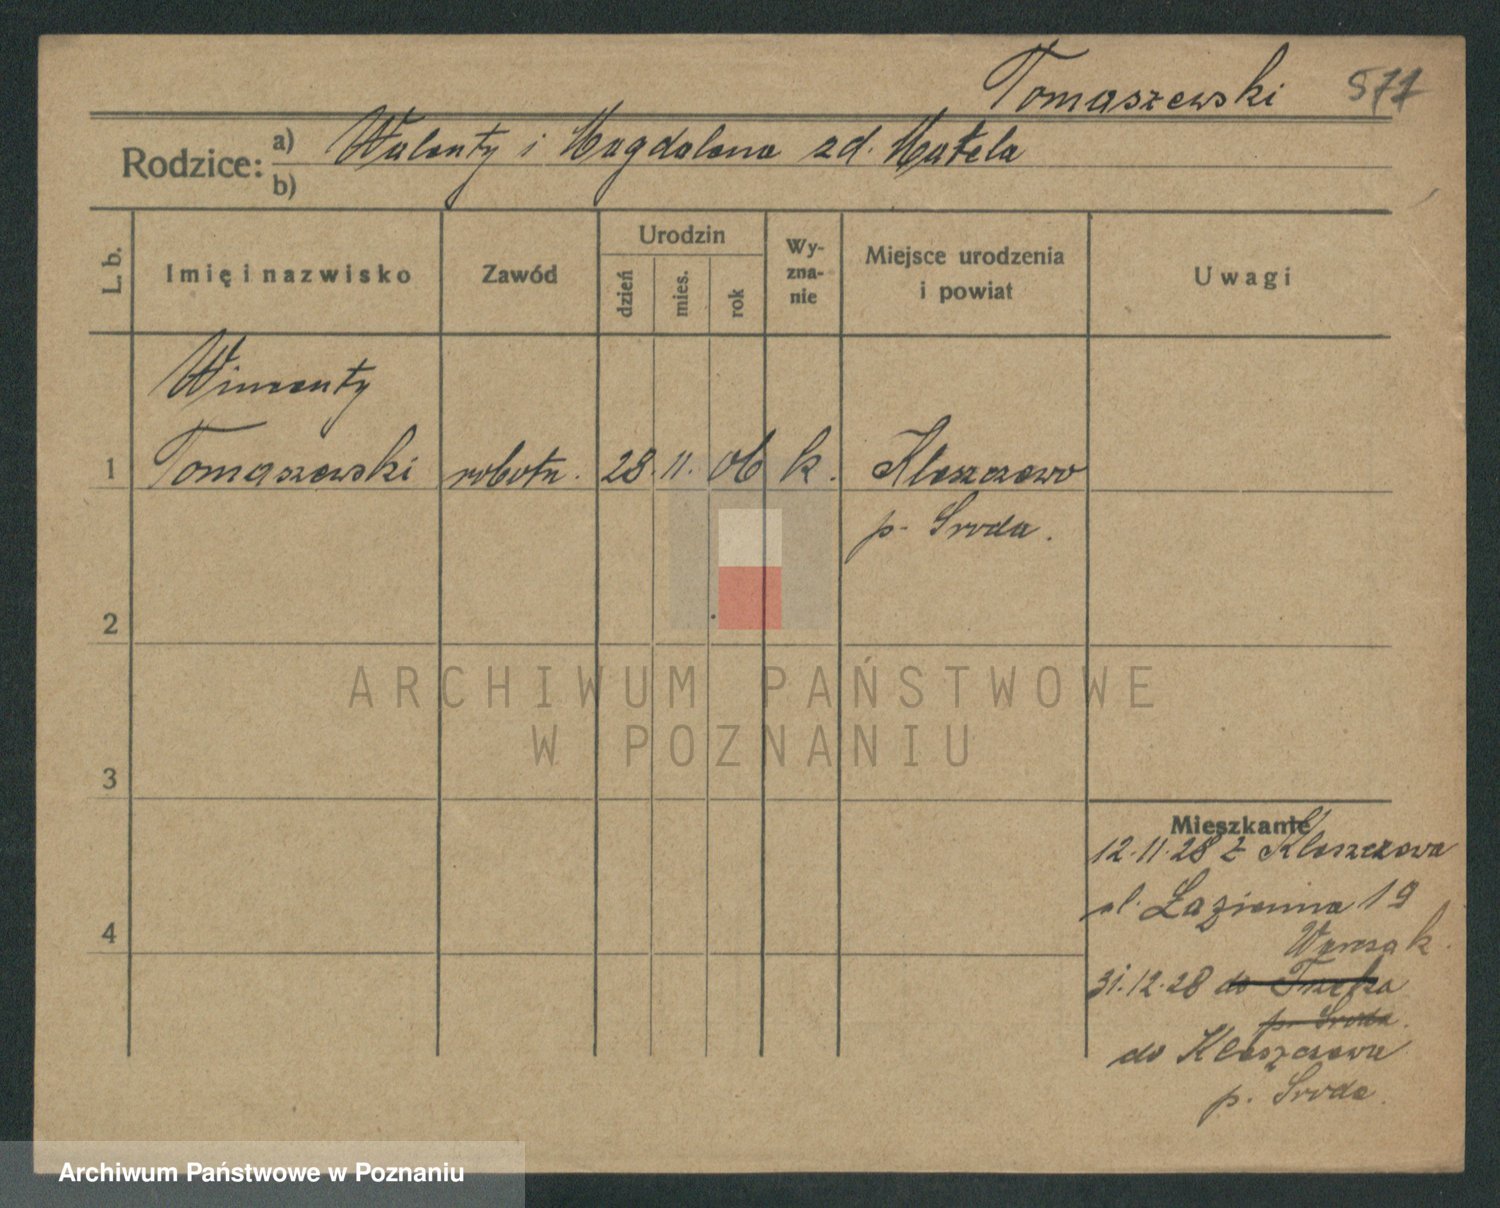 Tomaszewski 577
Rodzice: a) Walenty i Magdalena zd. Matela
b)
L. b. Imię i nazwisko Zawód Urodzin dzień mies. rok Wy-zna-nie Miejsce urodzenia i powiat Uwagi
Wincenty
1 Tomaszewski robotn. 28. 11. 06 k. Kleszczewo
p. Sroda.
2
ARCHIWUM PAŃSTWOWE
W POZNANIU
3
Mieszkanie
12.11.28 z Kleszczewa
ul. Łazienna 19
4
31.12.28 do
p. Sroda.
do Kleszczewa
p. Sroda.
Archiwum Państwowe w Poznaniu